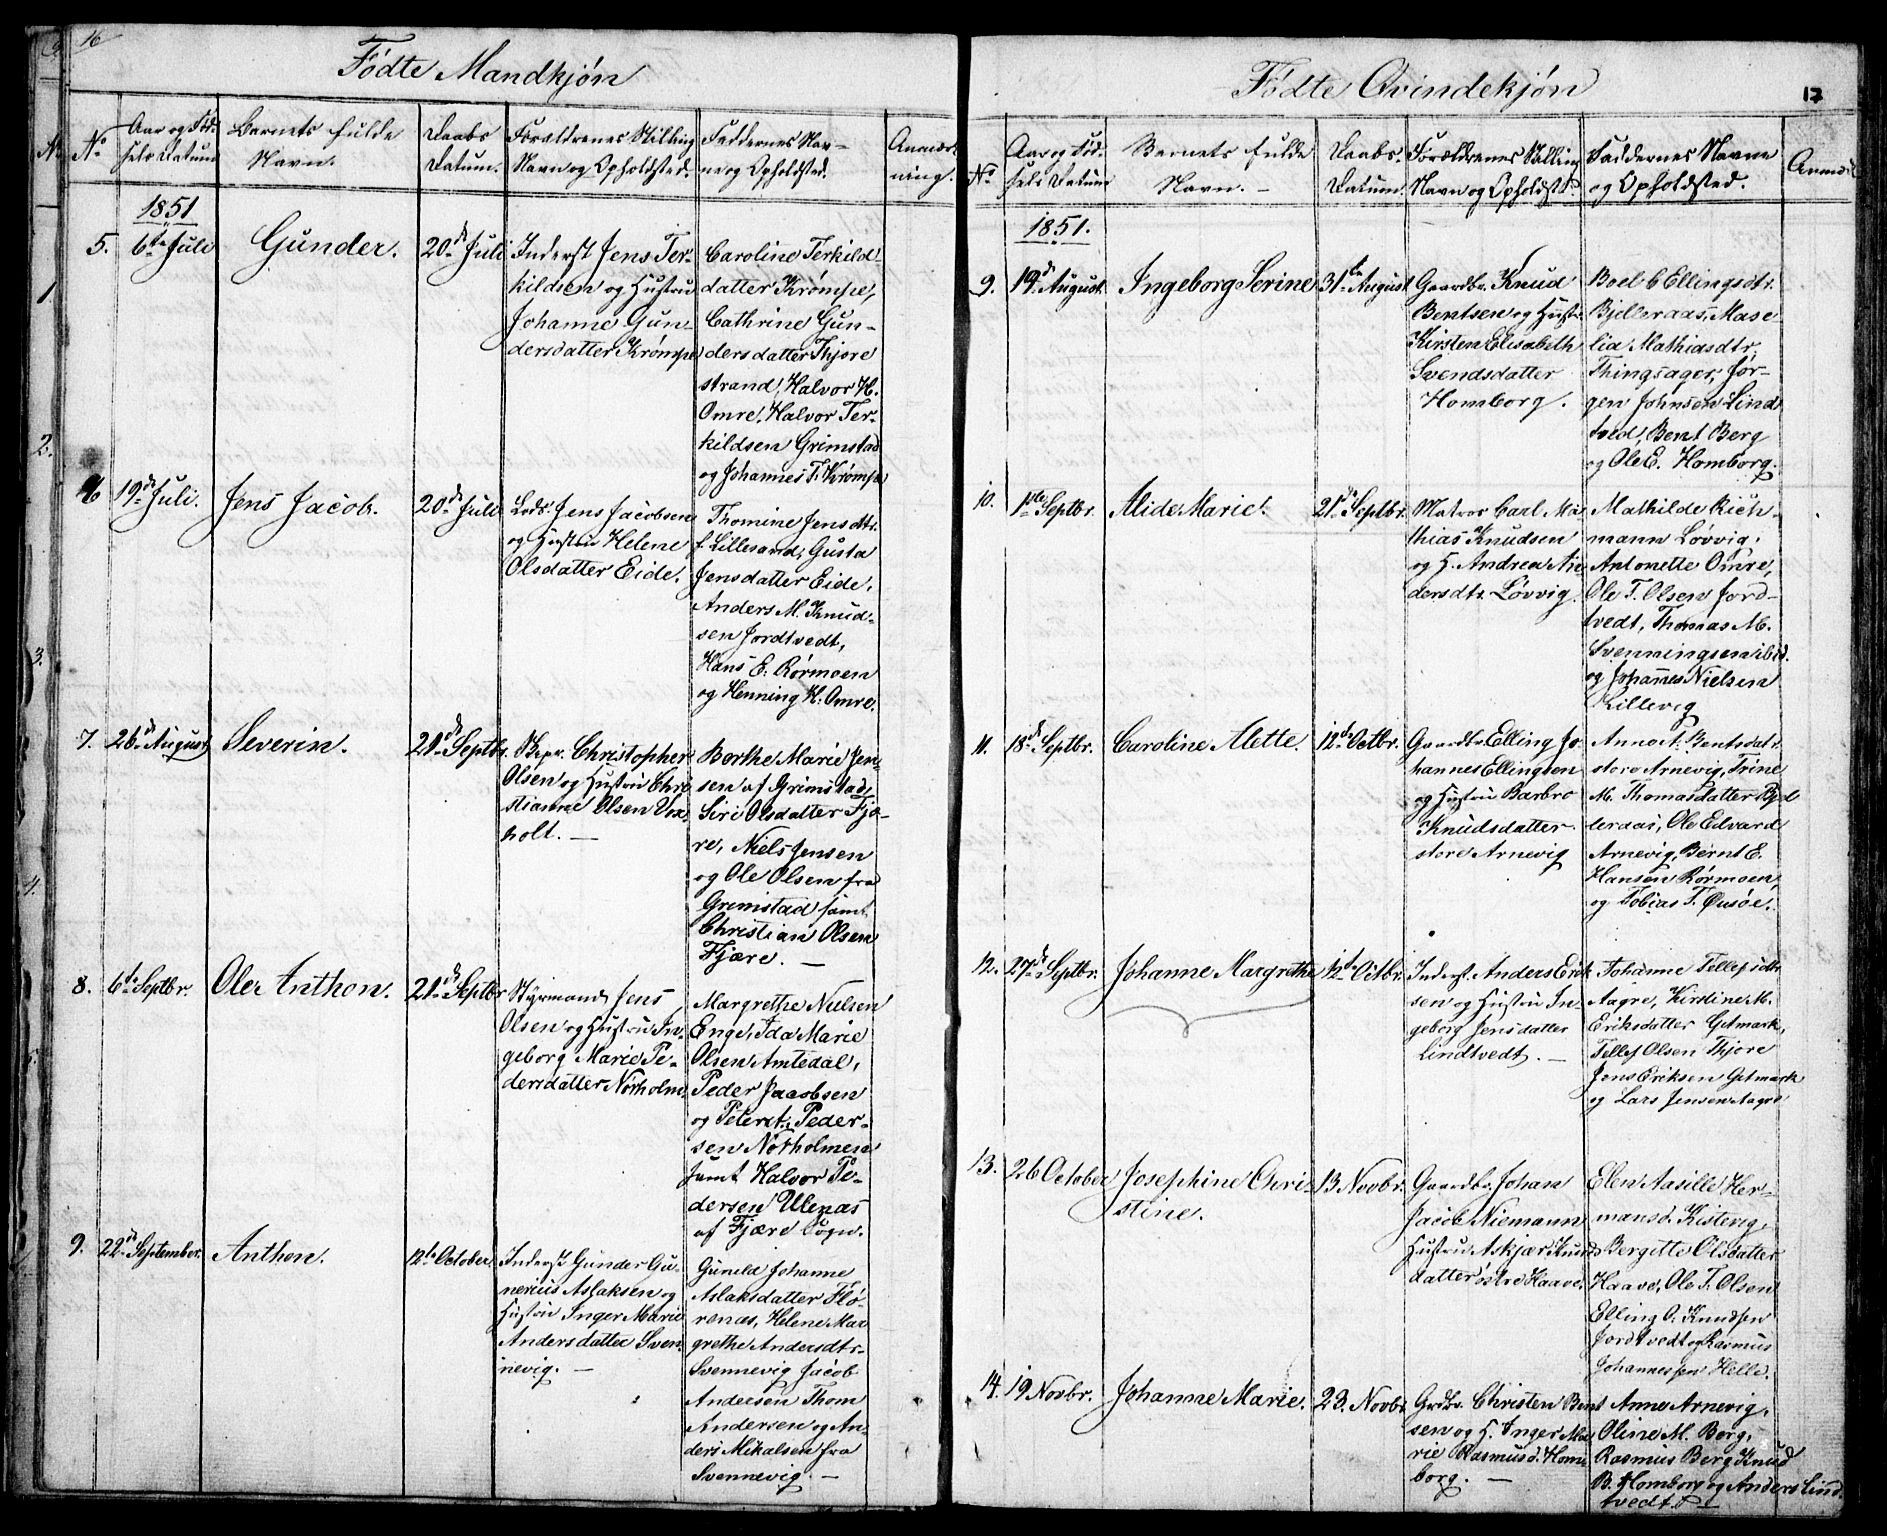 16
Fødte Mandkjøn
No
Aar og Fød-
sels Datum
Barnets fulde
Navn.
Daabs
Datum.
Forældrenes Stilling
Navn og Opholdsted.
Faddernes Nav-
ne og Opholdsted.
Anmærk
ning.
1851
5.
6te Juli
Gunder.
20de Juli
Inderst Jens Ter-
kildsen og Hustru
Johanne Gun-
dersdatter Krømpe
Caroline Terkild
datter Krømpe,
Cathrine Gun-
dersdatter Thjore
strand, Halvor H.
Omre, Halvor Ter-
kildsen Grimstad
og Johannes T. Krømpe
6
19de Juli.
Jens Jacob.
20de Juli
Lods Jens Jacobsen
og Hustru Helene
Olsdatter Eide.
Thomine Jensdtr.
f. Lillesand, Gusta
Jensdatter Eide,
Anders M. Knud-
sen Jordtvedt,
Hans E. Rørmoen
og Henning H. Omre.
7.
26de August
Severin.
21de Septbr.
Skpr. Christopher
Olsen og Hustru Chri
stianne Olsen Vox-
holt. —
Borthe Marie Jen-
sen af Grimstad,
Siri Olsdatter Fjæ-
re, Niels Jensen
og Ole Olsen fra
Grimstad samt
Christian Olsen
Fjære. —
8.
6te Septbr.
Ole Anthon.
21de Septbr
Styrmand Jens
Olsen og Hustru In-
geborg Marie Pe-
dersdatter Nørholm.
Margrethe Nielsen
Enge, Ida Marie
Olsen Amtedal,
Peder Jacobsen
og Peter A. Peder-
sen Nørholmen
samt Halvor Pe-
dersen Ulenæs
af Fjære Sogn.
9.
22de September.
Anthon.
12te October
Inderst Gunder Gu-
nerius Aslaksen og
Hustru Inger Marie
Andersdatter Sven-
nevig. —
Gunild Johanne
Aslaksdatter Flø-
renæs, Helene Mar
grethe Andersdtr.
Svennevig Jacob
Andersen Thom
Andersen og An-
ders Mikalsen fra
Svennevig. —
Fødte Qvindekjøn
17
No
Aar og Fød-
sels Datum
Barnets fulde
Navn. —
Daabs.
Datum.
Forældrenes Stilling
Navn og Opholdst.
Faddernes Navne
og Opholdsted.
Anmær
1851.
9.
19de August
Ingeborg Serine
31te August
Gaardbr. Knud
Bentsen og Hustr.
Kirsten Elisabeth
Svendsdatter
Homborg.
Boel C Ellingsdtr.
Bjelleraas, Mase-
lia Mathiasdtr,
Thingsager, Jør-
gen Johnsen Lind
tved, Bent Berg
og Ole E. Homborg.
10.
1ste Septbr.
Alide Marie.
21de Septbr.
Matros Carl Ma-
thias Knudsen
og H. Andrea An-
dersdtr Løvvig.
Mathilde Rich-
mann Løvvig,
Antonette Omre,
Ole T. Olsen Jord-
tvedt, Thomas M.
Svenningsen ibid.
og Johannes Nielsen
Killevig
11.
18de Septbr.
Caroline Alette.
12te Octbr.
Gaardbr. Elling Jo-
hannes Ellingsen
og Hustru Barbro
Knudsdatter
store Arnevig
Anne A. Bentsdatr
store Arnevig, Trine
M. Thomasdatter Bjel
leraas, Ole Edvard
Arnevig, Bernt E.
Hansen Rørmoen,
og Tobias T. Ousøe.
12.
27de Septbr.
Johanne Margrethe
12te Octbr.
Inderst Anders Erik
sen og Hustru In-
geborg Jensdatter
Lindtvedt. —
Johanne Tellefsdtr
Aagre, Kirstine M.
Eriksdatter Gitmark,
Tellef Olsen Thjore
Jens Eriksen Gitmark
og Lars Jensen Aagre
13.
26 October
Josephine Chri-
stine.
13 Novbr.
Gaardbr. Johan
Jacob Niemann
Hustru Askjær Knuds
datter østre Haave.
Elen Aasille Her-
mansd. Kistevig,
Bergitte Olsdatter
Haave, Ole T. Olsen
Elling O. Knudsen
Jordtvedt og Rasmus
Johannessen Helle.
14.
19 Novbr.
Johanne Marie.
23. Novbr
Grdbr. Christen Bent
sen og H. Inger Ma
rie Rasmusd. Hom
borg. —
Anne Arnevig,
Oline M. Berg,
Rasmus Berg Knud
B. Homborg og Anders Lind-
tvedt.